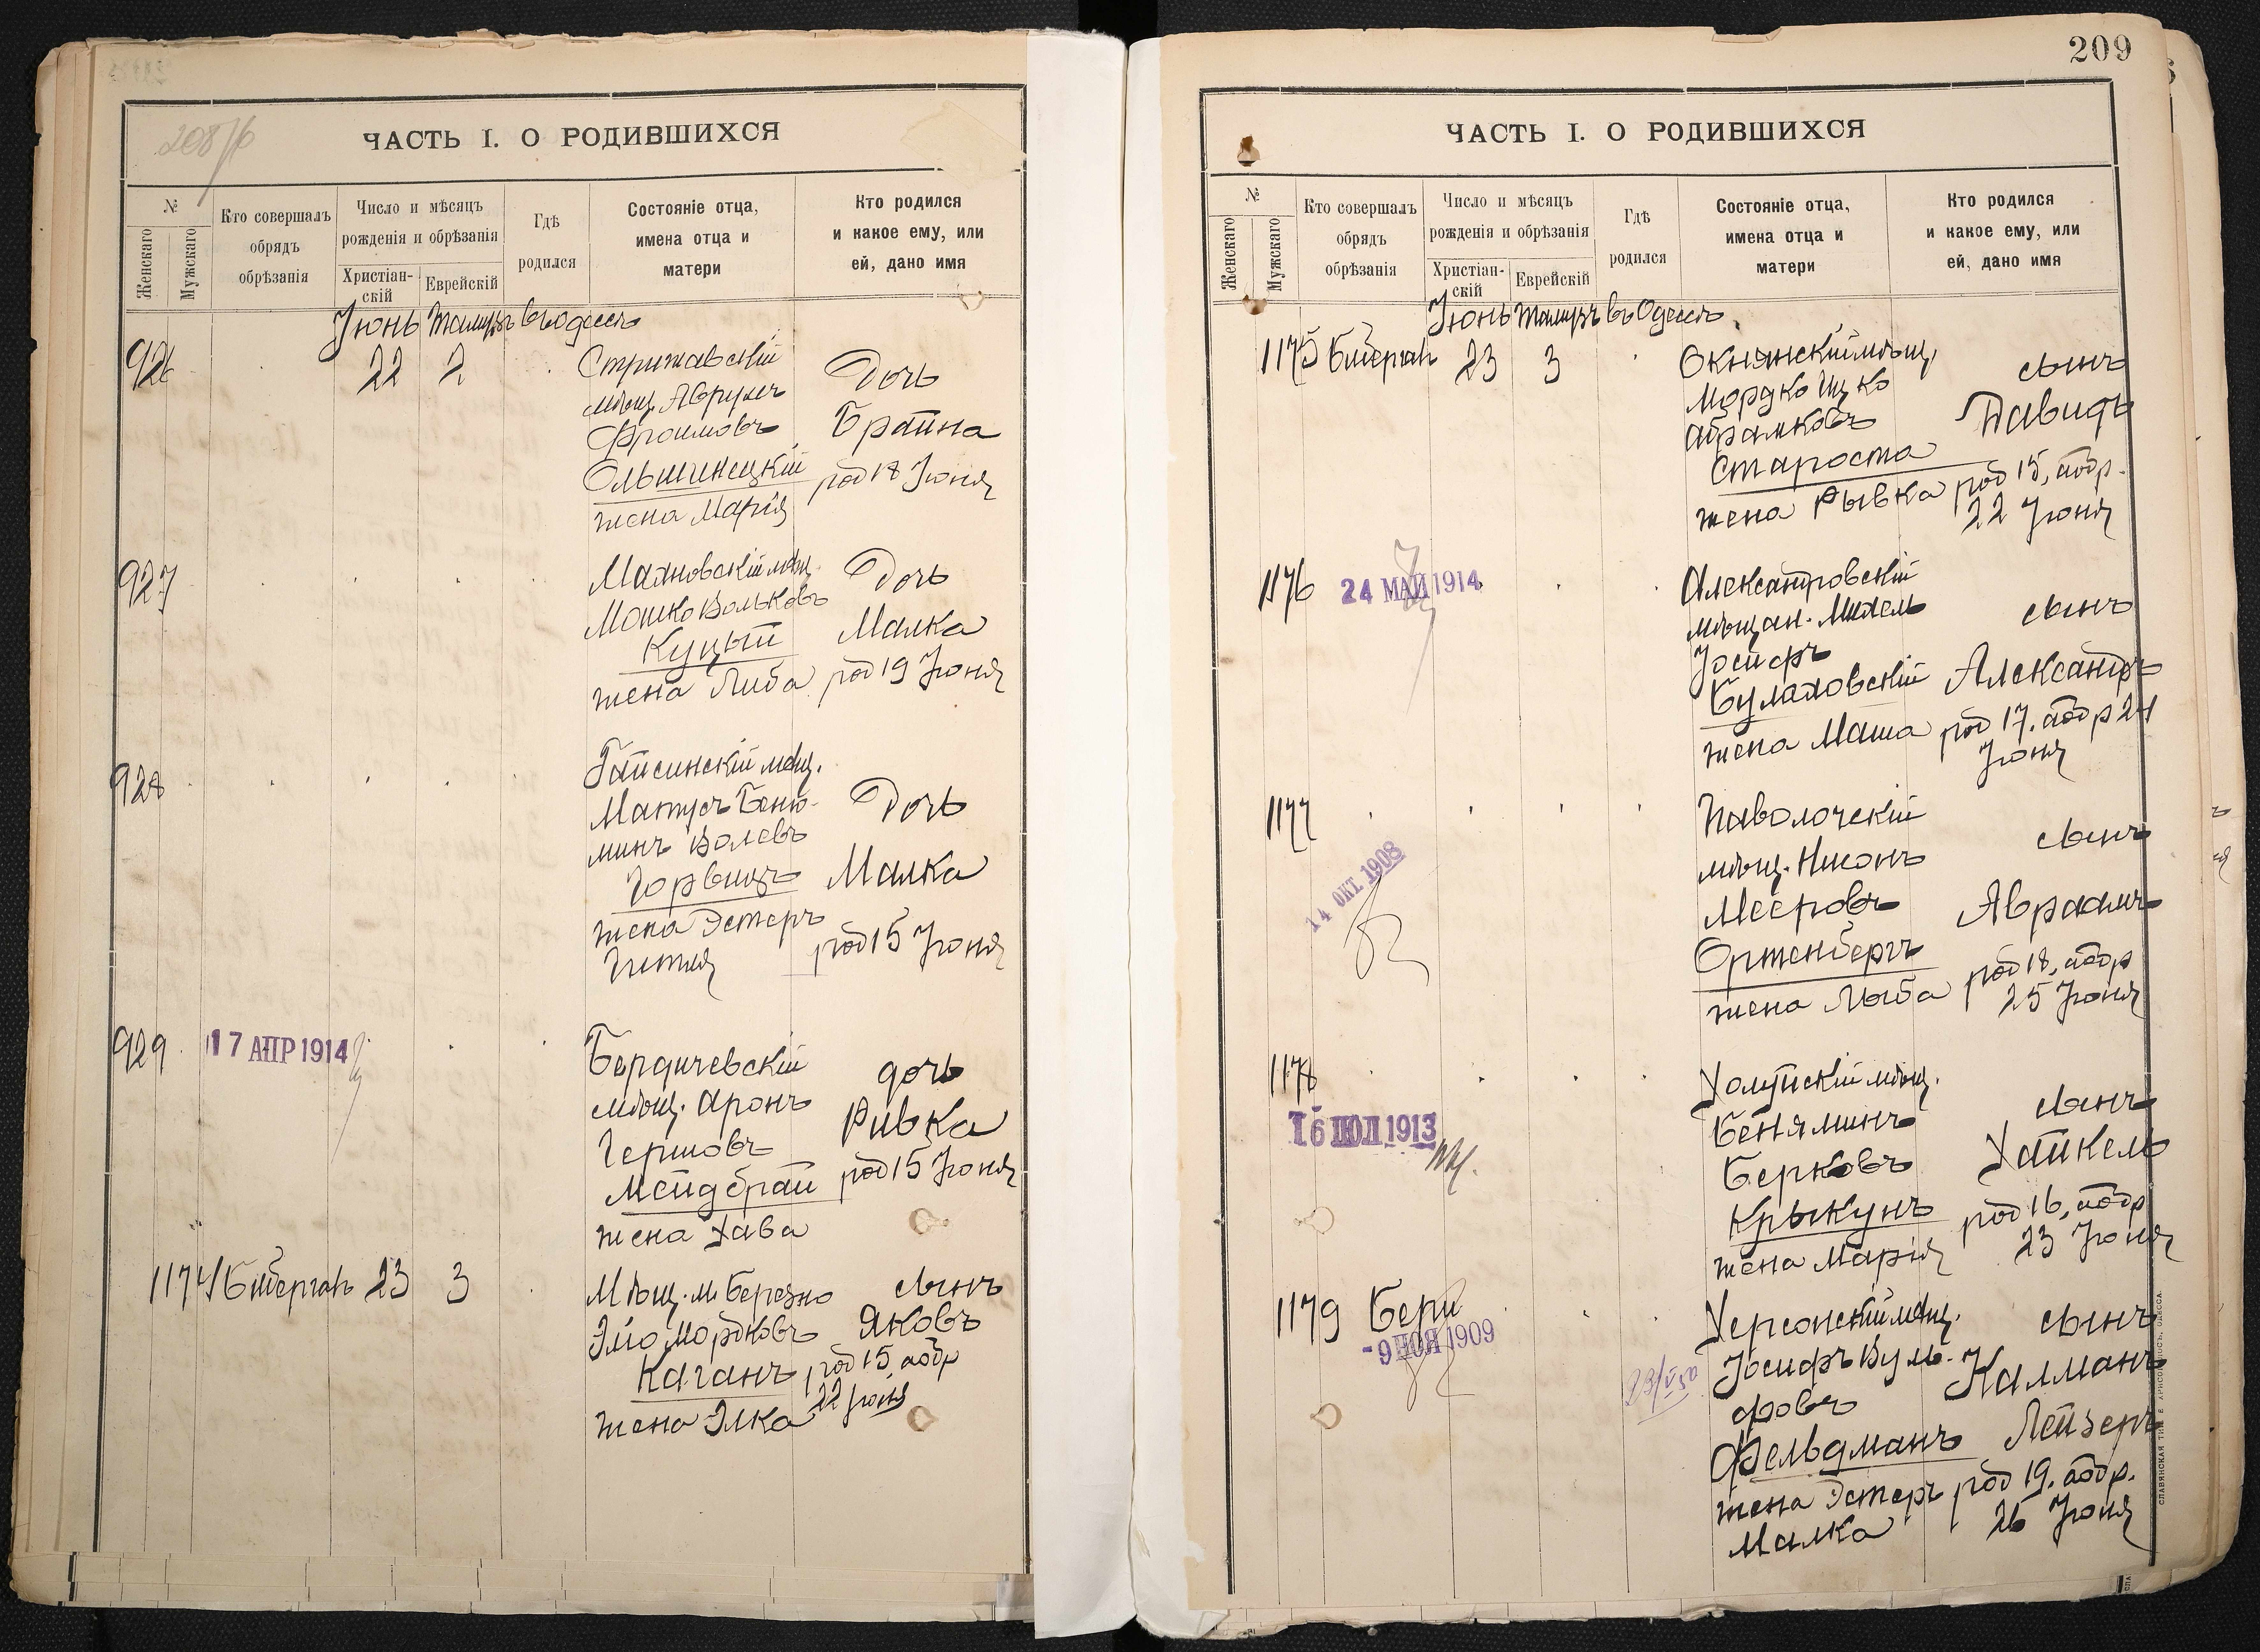 208/б
ЧАСТЬ I. О РОДИВШИХСЯ
№
Женскаго
Мужскаго
Кто совершалъ
обрядъ
обрѣзанія
Число и мѣсяцъ
рожденія и обрѣзанія
Христіан-
скій
Еврейскій
Гдѣ
родился
Состояніе отца,
имена отца и
матери
Кто родился
и какое ему, или
ей, дано имя
Іюнь Тамузъ въ Одессѣ
926
22 2
Стрижавскій
мѣщ. Аврумъ
Фроимовъ
Ольшинецкій
жена Марія
Дочь
Брайна
род 18 Іюня
927
Маяновскій мѣщ.
Мошко Вольковъ
Куцый
жена Либа
Дочь
Малка
род 19 Іюня
928
Гайсинскій мѣщ.
Матусъ Беню-
минъ Волевъ
Горвицъ
жена Эстеръ
Гитля
Дочь
Малка
род 15 Іюня
929
17 АПР 1914
Бердичевскій
мѣщ. Аронъ
Гершовъ
Мейдбрай
жена Хава
дочь
Ривка
род 15 Іюня
1174 23 3
Мѣщ. м. Березно
Эйо Мордковъ
Каганъ
жена Элка
сынъ
Яковъ
род 15, а обр
22 Іюня
209
ЧАСТЬ I. О РОДИВШИХСЯ
№
Женскаго
Мужскаго
Кто совершалъ
обрядъ
обрѣзанія
Число и мѣсяцъ
рожденія и обрѣзанія
Христіан-
скій
Еврейскій
Гдѣ
родился
Состояніе отца,
имена отца и
матери
Кто родился
и какое ему, или
ей, дано имя
Іюнь Тамузъ въ Одессѣ
1175 23 3
Окнянскій мѣщ.
Мордко Ицко
Абрамковъ
Староста
жена Рывка
сынъ
Давидъ
род 15, а обр.
22 Іюня
1176
24 МАЙ 1914
Александровскій
мѣщан. Михель
Іосифъ
Булаховскій
жена Маша
сынъ
Александръ
род 17. а обр 24
Іюня
1177
14 ОКТ. 1908
Паволочскій
мѣщ. Нисонъ
Мееровъ
Ортенбергъ
жена Лыба
сынъ
Авраамъ
род 18, а обр
25 Іюня
1178
16 ІЮЛ 1913
мѣщ.
Беняминъ
Берковъ
Крыкунъ
жена Марія
сынъ
Хайкель
род 16, а обр
23 Іюня
1179
-9 НОЯ 1909
Херсонскій мѣщ.
Іосифъ Вуль-
фовъ
Фельдманъ
жена Эстеръ
Малка
сынъ
Калманъ
Лейзеръ
род 19. а обр.
26 Іюня
СЛАВЯНСКАЯ ТИП. Е. ХРИСОГЕЛОСЪ, ОДЕССА.